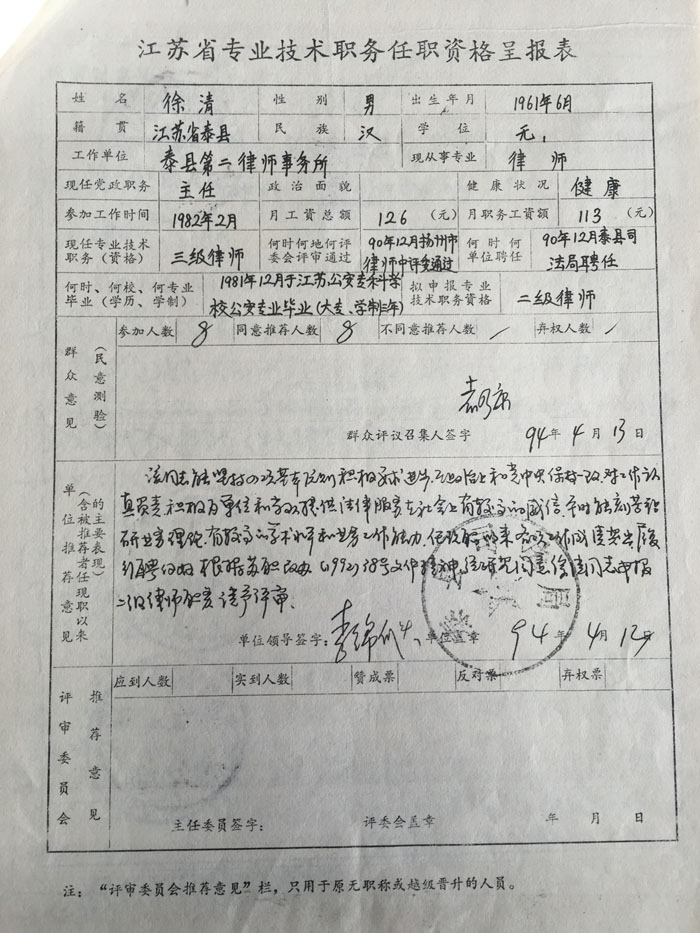 江苏省专业技术职务任职资格呈报表
姓名 徐清 性别 男 出生年月 1961年6月
籍贯 江苏省泰县 民族 汉 学位 无,
工作单位 泰县第二律师事务所 现从事专业 律师
现任党政职务 主任 政治面貌 健康状况 健康
参加工作时间 1982年2月 月工资总额 126 (元) 月职务工资额 113 (元)
现任专业技术职务(资格) 三级律师 何时何地何评委会评审通过 90年12月扬州市律师中评委通过 何时何单位聘任 90年12月泰县司法局聘任
何时、何校、何专业毕业(学历、学制) 1981年12月于江苏公安专科学校公安专业毕业(大专、学制三年) 拟申报专业技术职务资格 二级律师
群众意见(民意测验)
参加人数 8 同意推荐人数 8 不同意推荐人数 / 弃权人数 /
群众评议召集人签字 94年4月13日
单位推荐意见(含被推荐者任现职以来的主要表现)
该同志能坚持四项基本原则积极要求进步,在政治上和党中央保持一致,对工作认
真负责积极为单位和 提供法律服务在社会上有较高的威信,平时能刻苦钻
研业务理论,有较高的学术水平和业务工作能力,任现职以来 工作成绩突出,
根据苏职改办(1992)38号文件精神,经研究同意徐清同志申报
二级律师职务请予评审。
单位领导签字: 单位盖章 94年4月12日
评审委员会推荐意见
应到人数 实到人数 赞成票 反对票 弃权票
主任委员签字: 评委会盖章 年 月 日
注:“评审委员会推荐意见”栏,只用于原无职称或越级晋升的人员。